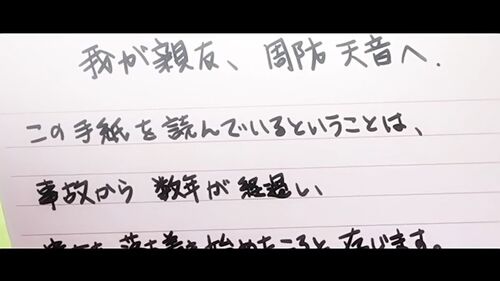 我が親友、周防天音へ.
この手紙を読んでいるということは、
事故から数年が経過し、
落ち着き始めたころと存じます。